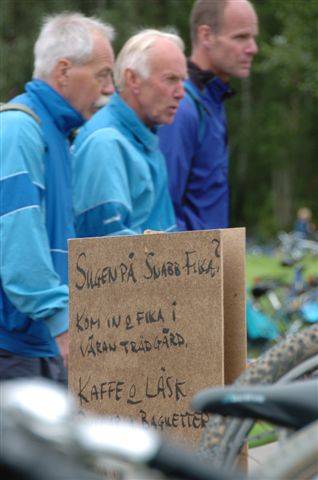 SUGEN PÅ SNABB FIKA?
KOM IN & FIKA I
VÅRAN TRÄDGÅRD.
KAFFE & LÄSK
BAGUETTER